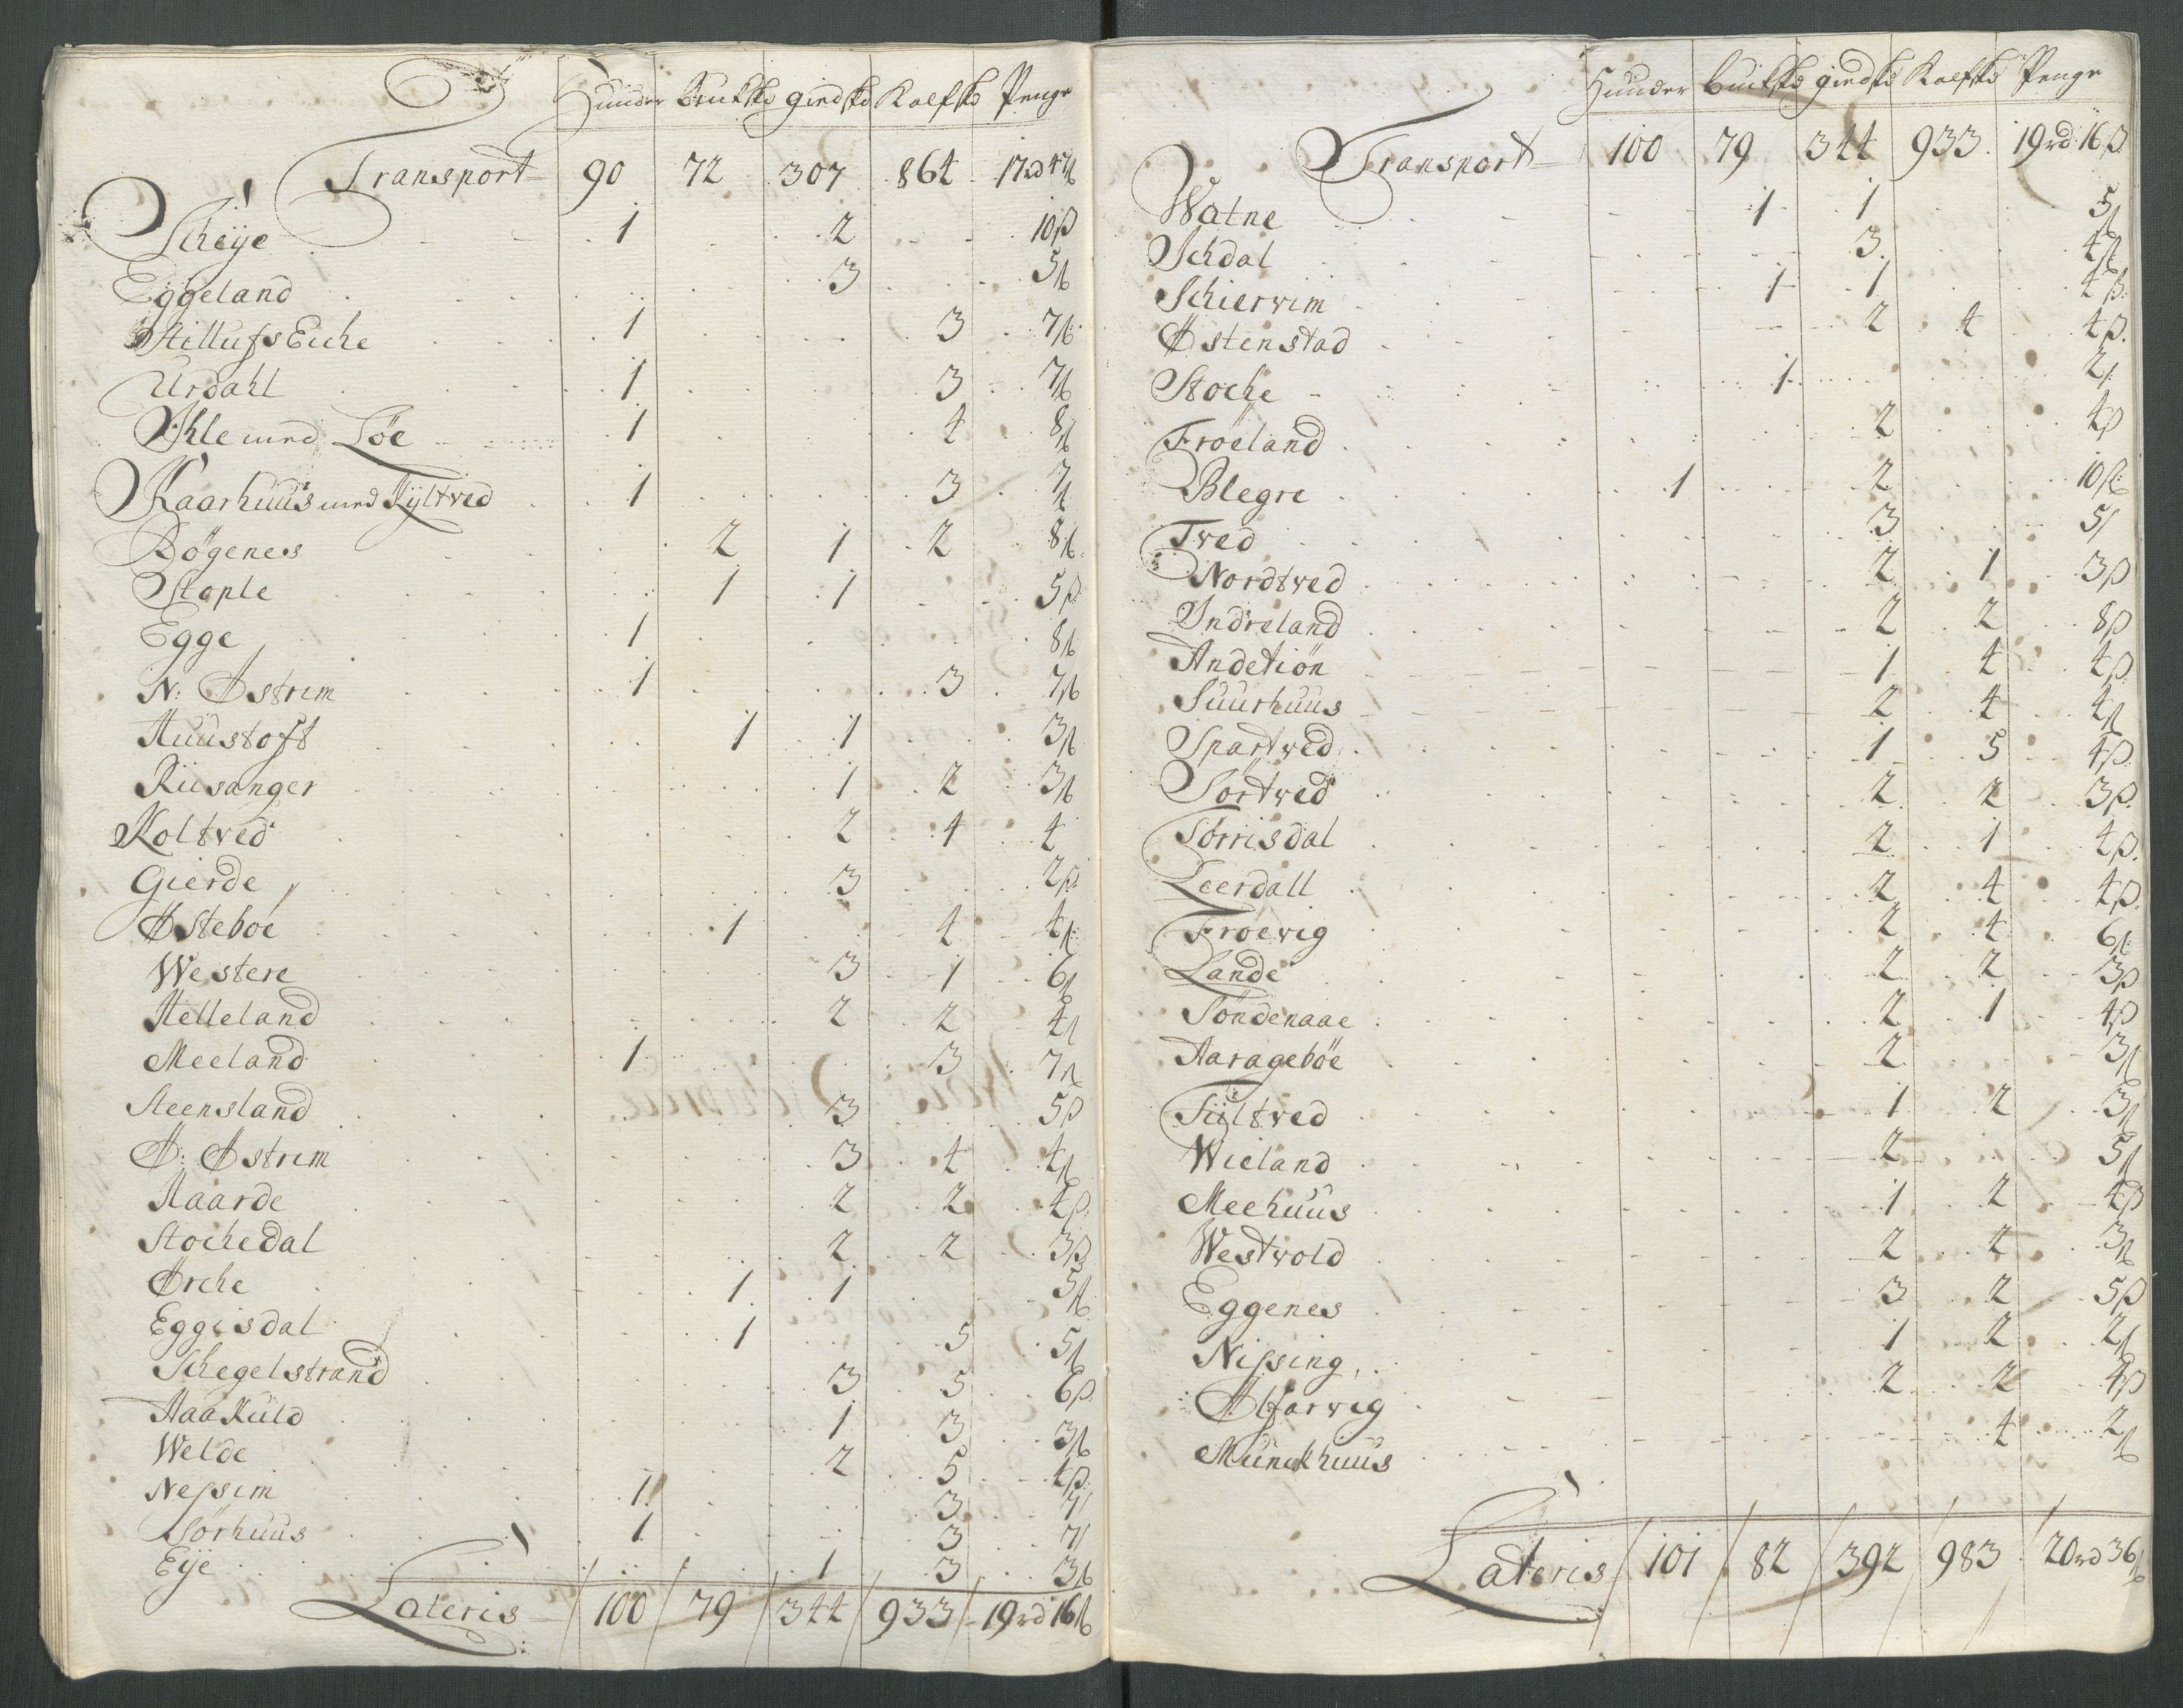 Huuder Buckskd giedskd Kalfskd Penge
Transport 90 72 307 864 17rd 47ß
Scheije 1 2 10ß
Eggeland 3 5ß
StillufsEiche 1 3 7ß
Urdahl 1 3 7ß
Ihle med Löe 1 4 8ß
Kaarhuus med Kyltved 1 3 7ß
Bögenes 2 1 2 8ß
Stople 1 1 5ß
Egge 1 8ß
N: Østrem 1 3 7ß
Huustoft 1 1 3ß
Riisanger 1 2 3ß
Koltved 2 4 4
Gierde 3 2ß
Østeboe 1 4 4ß
Westere 3 1 6ß
Helleland 2 2 4ß
Meeland 1 3 7ß
Steensland 3 5ß
Ø: Østrem 3 4 4ß
Haarde 2 2 4ß
Stochedal 2 2 3ß
Ørche 1 1 5ß
Eggisdal 1 5 5ß
Schegelstrand 3 5 6ß
HaaKuld 1 3 3ß
Welde 2 5 4ß
Nessim 1 3 7ß
Sörhuus 1 3 7ß
Eije 1 3 3ß
Lateris 100 79 344 933 19rd 16ß
Huuder Buckskd giedskd Kalfskd Penge
Transport 100 79 344 933 19rd 16ß
Watne 1 1 5ß
Schdal 3 4ß
Schiervim 1 1 4ß
Østenstad 2 4 4ß
Stoche 1 2ß
Fröeland 2 4ß
Blegre 1 2 10ß
Tved 3 5ß
Nordtved 2 1 3ß
Indreland 2 2 8ß
Andetiön 1 4 4ß
Suurhuus 2 4 4ß
Spartved 1 5 4ß
Sörtved 2 2 3ß
Törrisdal 2 1 4ß
Leerdall 2 4 4ß
Fröevig 2 4 6ß
Lande 2 2 3ß
Söndenaae 2 1 4ß
Harageböe 2 3ß
Tyltved 1 2 3ß
Wieland 2 5ß
Meehuus 1 2 4ß
Westvold 2 2 3ß
Eggenes 3 2 5ß
Nissing 1 2 2ß
Alfarvig 2 2 4ß
Munckhuus 4 2ß
Lateris 101 82 392 983 20rd 36ß